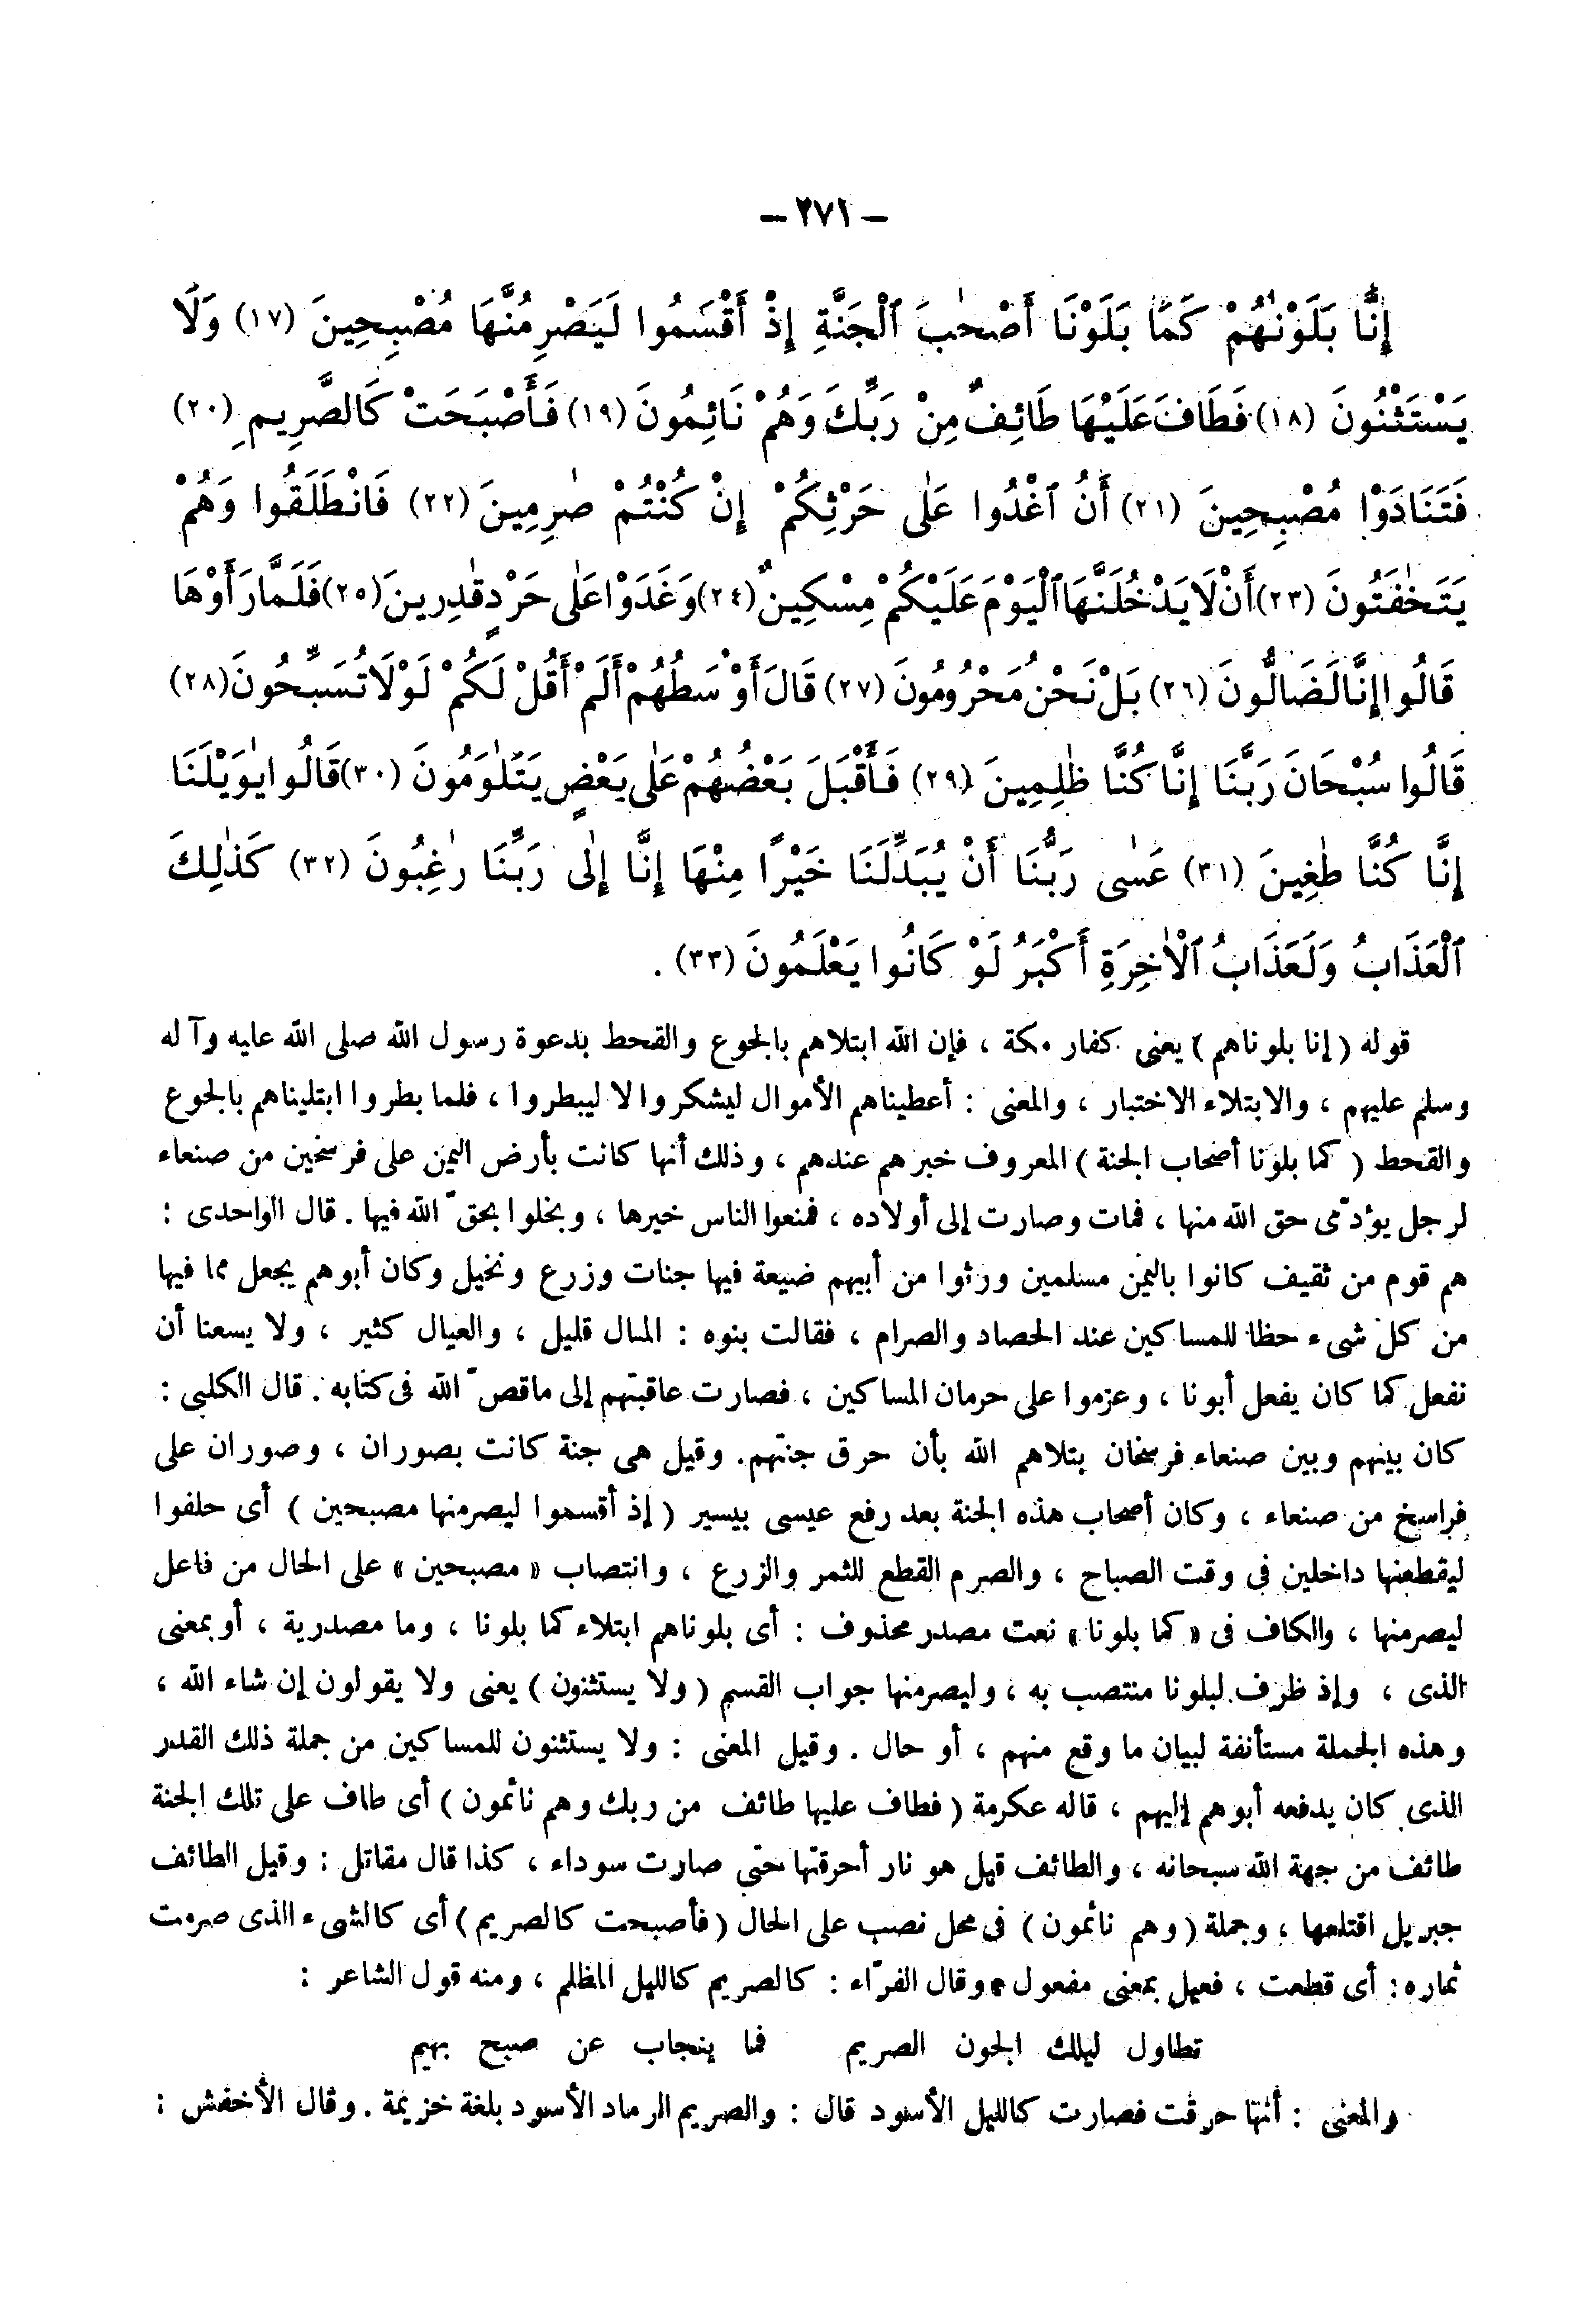 – ٢٧١ –
إِنَّا بَلَوْنٰهُمْ كَمَا بَلَوْنَا أَصْحٰبَ ٱلْجَنَّةِ إِذْ أَقْسَمُوا لَيَصْرِمُنَّهَا مُصْبِحِينَ (١٧) وَلَا
يَسْتَثْنُونَ (١٨) فَطَافَ عَلَيْهَا طَائِفٌ مِنْ رَبِّكَ وَهُمْ نَائِمُونَ (١٩) فَأَصْبَحَتْ كَالصَّرِيمِ (٢٠)
فَتَنَادَوْا مُصْبِحِينَ (٢١) أَنُ ٱغْدُوا عَلٰى حَرْثِكُمْ إِنْ كُنْتُمْ صٰرِمِينَ (٢٢) فَانْطَلَقُوا وَهُمْ
يَتَخٰفَتُونَ (٢٣) أَنْ لَا يَدْخُلَنَّهَا ٱلْيَوْمَ عَلَيْكُمْ مِسْكِينٌ (٢٤) وَغَدَوْا عَلٰى حَرْدٍ قٰدِرِينَ (٢٥) فَلَمَّا رَأَوْهَا
قَالُوا إِنَّا لَضَالُّونَ (٢٦) بَلْ نَحْنُ مَحْرُومُونَ (٢٧) قَالَ أَوْسَطُهُمْ أَلَمْ أَقُلْ لَكُمْ لَوْلَا تُسَبِّحُونَ (٢٨)
قَالُوا سُبْحَانَ رَبِّنَا إِنَّا كُنَّا ظٰلِمِينَ (٢٩) فَأَقْبَلَ بَعْضُهُمْ عَلٰى بَعْضٍ يَتَلٰوَمُونَ (٣٠) قَالُوا يٰوَيْلَنَا
إِنَّا كُنَّا طٰغِينَ (٣١) عَسٰى رَبُّنَا أَنْ يُبَدِّلَنَا خَيْرًا مِنْهَا إِنَّا إِلٰى رَبِّنَا رٰغِبُونَ (٣٢) كَذٰلِكَ
ٱلْعَذَابُ وَلَعَذَابُ ٱلْاٰخِرَةِ أَكْبَرُ لَوْ كَانُوا يَعْلَمُونَ (٣٣) .
قوله ( إنا بلوناهم ) يعنى كفار مكة ، فإن الله ابتلاهم بالجوع والقحط بدعوة رسول الله صلى الله عليه وآله
وسلم عليهم ، والابتلاء الاختبار ، والمعنى : أعطيناهم الأموال ليشكروا لا ليبطروا ، فلما بطروا ابتليناهم بالجوع
والقحط ( كما بلونا أصحاب الجنة ) المعروف خبرهم عندهم ، وذلك أنها كانت بأرض اليمن على فرسخين من صنعاء
لرجل يؤدّى حق الله منها ، فمات وصارت إلى أولاده ، فمنعوا الناس خيرها ، وبخلوا بحقّ الله فيها . قال الواحدى :
هم قوم من ثقيف كانوا باليمن مسلمين ورثوا من أبيهم ضيعة فيها جنات وزرع ونخيل وكان أبوهم يجعل مما فيها
من كل شىء حظا للمساكين عند الحصاد والصرام ، فقالت بنوه : المال قليل ، والعيال كثير ، ولا يسعنا أن
نفعل كما كان يفعل أبونا ، وعزموا على حرمان المساكين ، فصارت عاقبتهم إلى ماقصّ الله فى كتابه . قال الكلبى :
كان بينهم وبين صنعاء فرسخان بتلاهم الله بأن حرق جنتهم. وقيل هى جنة كانت بصوران ، وصوران على
فراسخ من صنعاء ، وكان أصحاب هذه الجنة بعد رفع عيسى بيسير ( إذ أقسموا ليصرمنها مصبحين ) أى حلفوا
ليقطعنها داخلين فى وقت الصباح ، والصرم القطع للثمر والزرع ، وانتصاب « مصبحين » على الحال من فاعل
ليصرمنها ، والكاف فى « كما بلونا » نعت مصدر محذوف : أى بلوناهم ابتلاء كما بلونا ، وما مصدرية ، أو بمعنى
الذى ، وإذ ظرف لبلونا منتصب به ، وليصرمنها جواب القسم ( ولا يستثنون ) يعنى ولا يقولون إن شاء الله ،
وهذه الجملة مستأنفة لبيان ما وقع منهم ، أو حال . وقيل المعنى : ولا يستثنون للمساكين من جملة ذلك القدر
الذى كان يدفعه أبوهم إليهم ، قاله عكرمة ( فطاف عليها طائف من ربك وهم نائمون ) أى طاف على تلك الجنة
طائف من جهة الله سبحانه ، والطائف قيل هو نار أحرقتها حتى صارت سوداء ، كذا قال مقاتل : وقيل الطائف
جبريل اقتلعها ، وجملة ( وهم نائمون ) فى محل نصب على الحال ( فأصبحت كالصريم ) أى كالشىء الذى صرمت
ثماره : أى قطعت ، فعيل بمعنى مفعول ، وقال الفرّاء : كالصريم كالليل المظلم ، ومنه قول الشاعر :
تطاول ليلك الجون الصريم فما ينجاب عن صبح بهيم
والمعنى : أنها حرقت فصارت كالليل الأسود قال : والصريم الرماد الأسود بلغة خزيمة . وقال الأخفش :